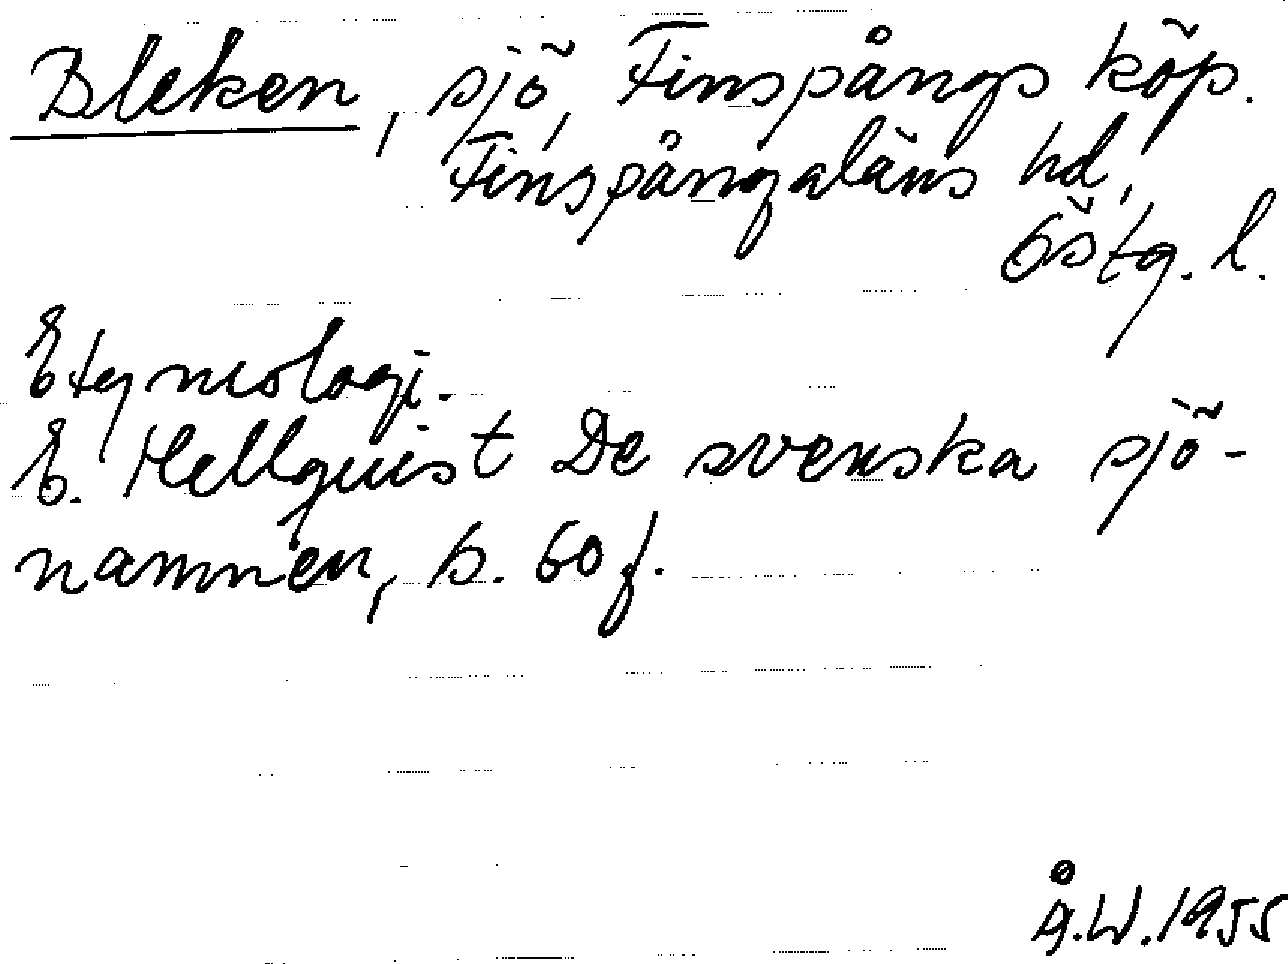 Bleken, sjö, Finspångs köp.
Finspångaläns hd,
Östg. l.
Etymologi.
E. Hellquist De svenska sjö-
namnen, s. 60 f.
Å.W.1955